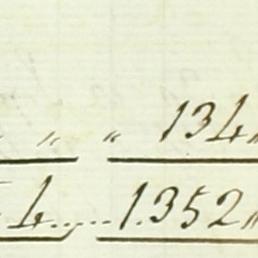 " " 134"
4.....1.352"